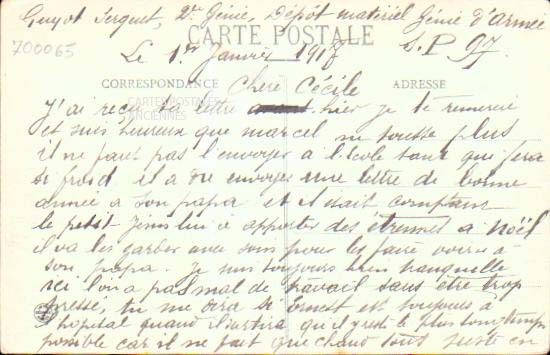 Guyot Sergent, 2e Génie, Dépôt matériel Génie d'Armée
CARTE POSTALE
700065
Le 1er Janvier 1917
S. P 97.
CORRESPONDANCE
ADRESSE
Chere Cécile
CARTES POSTALES
ANCIENNES
J'ai reçu ta lettre hier je te remercie
et suis heureux que marcel ne tousse plus
il ne faut pas l'envoyer à l'école tant qui fera
si froid il a du envoyer une lettre de bonne
année a son papa et il était content
le petit Jésus lui a apporter des étrennes a Noël
il va les garder avec soin pour les faire voir a
son papa. Je suis toujours bien tranquille
ici l'on a pas mal de travail sans être trop
pressé, tu me dira si Ernest est toujours a
hopital quand il sortira qu'il y reste le plus longtemps
possible car il ne fait que chaud tout juste en